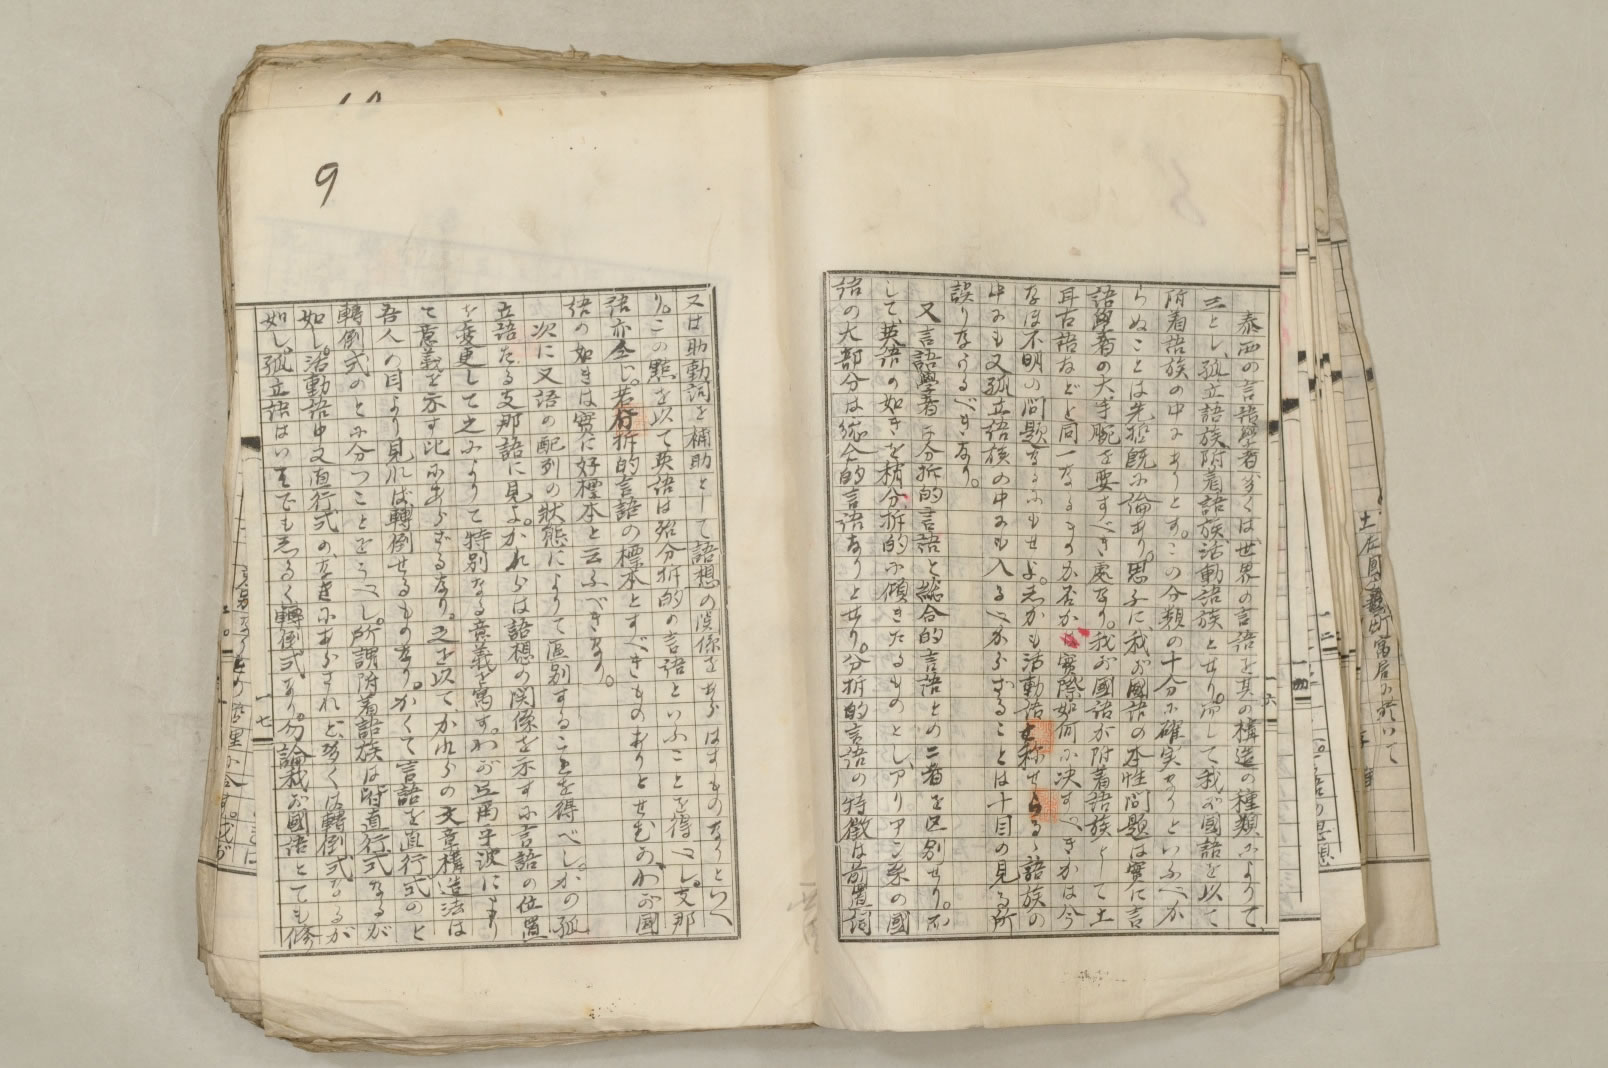 泰西の言語學者多くは世界の言語を其の構造の種類によりて、
三とし、孤立語族附着語族活動語族とせり。而して我が国語を以て
附着語族の中にありとす。この分類の十分に確実なりといふべか
らぬことは先哲既に論あり。思ふに、我が國語の本性問題は實に言
語學者の大手腕を要すべき處なり。我が國語が附着語族として土
耳古語などと同一なるものか否かは實際如何に決すべきかは今
なほ不明の問題なるにもせよ。志かも活動語と称せらるゝ語族の
中にも又孤立語族の中にも入るべからざることは十目の見る所
誤りなかるべきなり。
又言語學者は分拆的言語と総合的言語との二者を区別せり。而
して、英語の如きを稍分拆的に傾きたるものとし、アリアン系の國
語の大部分は総合的言語なりとせり。分拆的言語の特徴は前置詞
又は助動詞を補助として語想の関係をあらはすものなりといへ
り。この點を以て英語は殆分拆的の言語といふことを得べし。支那
語亦仝じ。若分拆的言語の標本とすべきものありとせむか、わが國
語の如きは實に好標本と云ふべきなり。
次に又語の配列の状態によりて區別することを得べし。かの孤
立語たる支那語に見よ。かれらは語想の関係を示すに言語の位置
を変更して之によりて特別なる意義を寓す。わが弖爾乎波により
て意義を示す比にあらざるなり。之を以て、かれらの文章構造法は
吾人の目より見れば轉倒せるものなり。かくて言語を直行式のと
轉倒式のとに分つことをうべし。所謂附着語族は皆直行式なるが
如し。活動語中又直行式の、なきにあらざれど、多くは轉倒式なるが
如し。孤立語はいふまでも志るく轉倒式なり。勿論我が國語とても修
9
一六
一七
土佐國
寓居に於いて